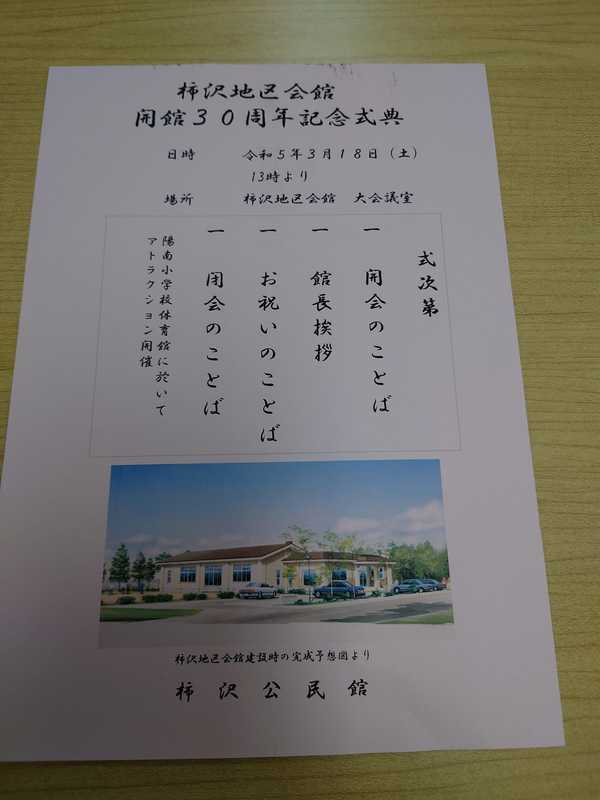 柿沢地区会館
開館３０周年記念式典
日時　令和５年３月１８日（土）
13時より
場所　柿沢地区会館　大会議室
式次第
一　開会のことば
一　館長挨拶
一　お祝いのことば
一　閉会のことば
陽南小学校体育館に於いて
アトラクション開催
柿沢地区会館建設時の完成予想図より
柿沢公民館